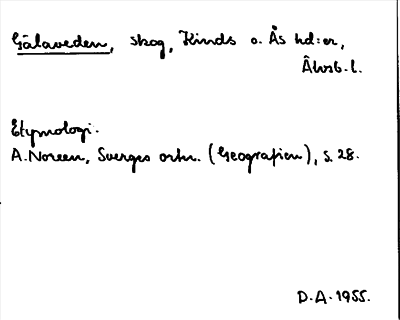 Gälaveden, skog, Kinds o. Ås hd:er,
Älvsb. l.
Etymologi.
A. Noreen, Sveriges ortn. (Geografien), s. 28.
D.A. 1955.